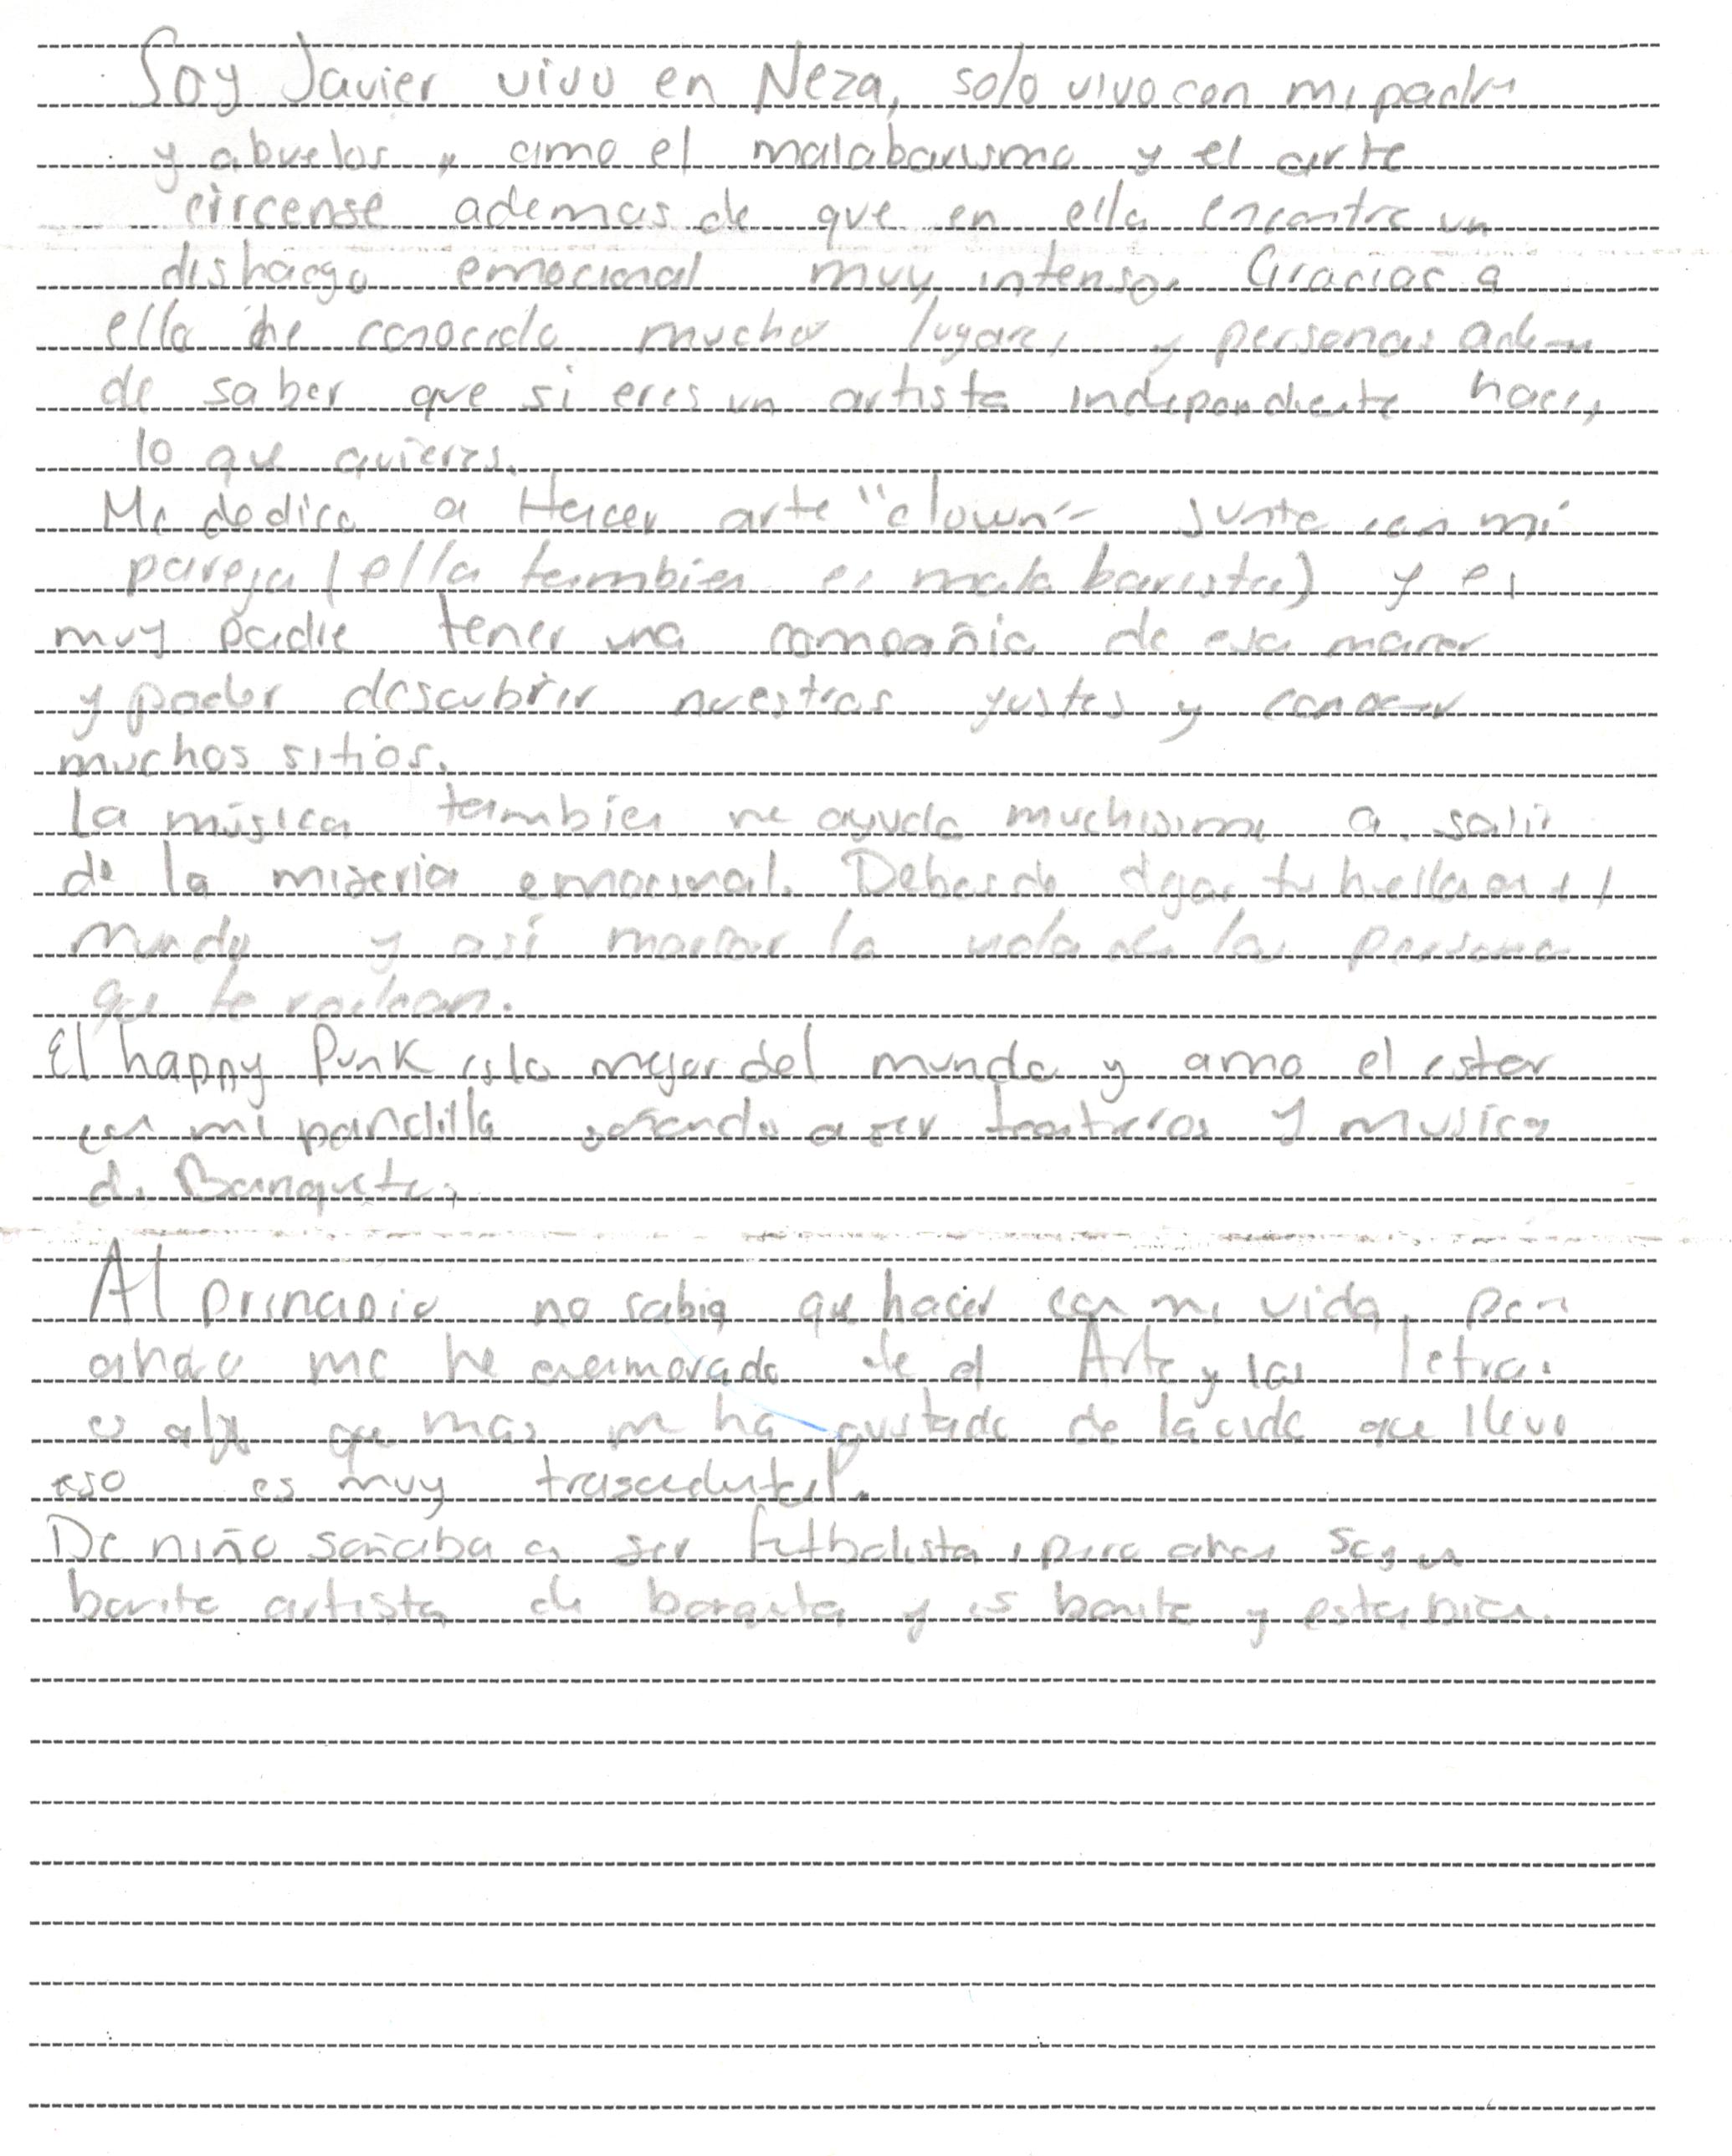 Soy Javier vivo en Neza, solo vivo con mi padre
y abuelos, amo el malabarismo y el arte
circense ademas de que en ella encontre un
dishaogo emocional muy intenso. Gracias a
ella he conocido muchos lugares y personas adem
de saber que si eres un artista independiente haces
lo que quieres.
Me dedico a Hacer arte "clown" junto con mi
pareja (ella tambien es malabarista) y es
muy padre tener una compañia de esa maner
y poder descubrir nuestros gustos y conocer
muchos sitios.
La música tambien me ayuda muchisimo a salir
de la miseria emocional. Debes de dejar tu huella en el
mundo y asi marcar la vida de las persona
que te rodean.
El happy Punk es lo mejor del mundo y amo el estar
con mi pandilla soñando a ser y musico
de Banqueta.
Al principio no sabia que hacer con mi vida, pero
ahora me he enamorado de el Arte y las letras
es algo que mas me ha gustado de la vida que llevo
eso es muy trascedental.
De niño soñaba a ser futbolista, pero ahora soy un
bonito artista de banqueta y es bonito y esta bien.